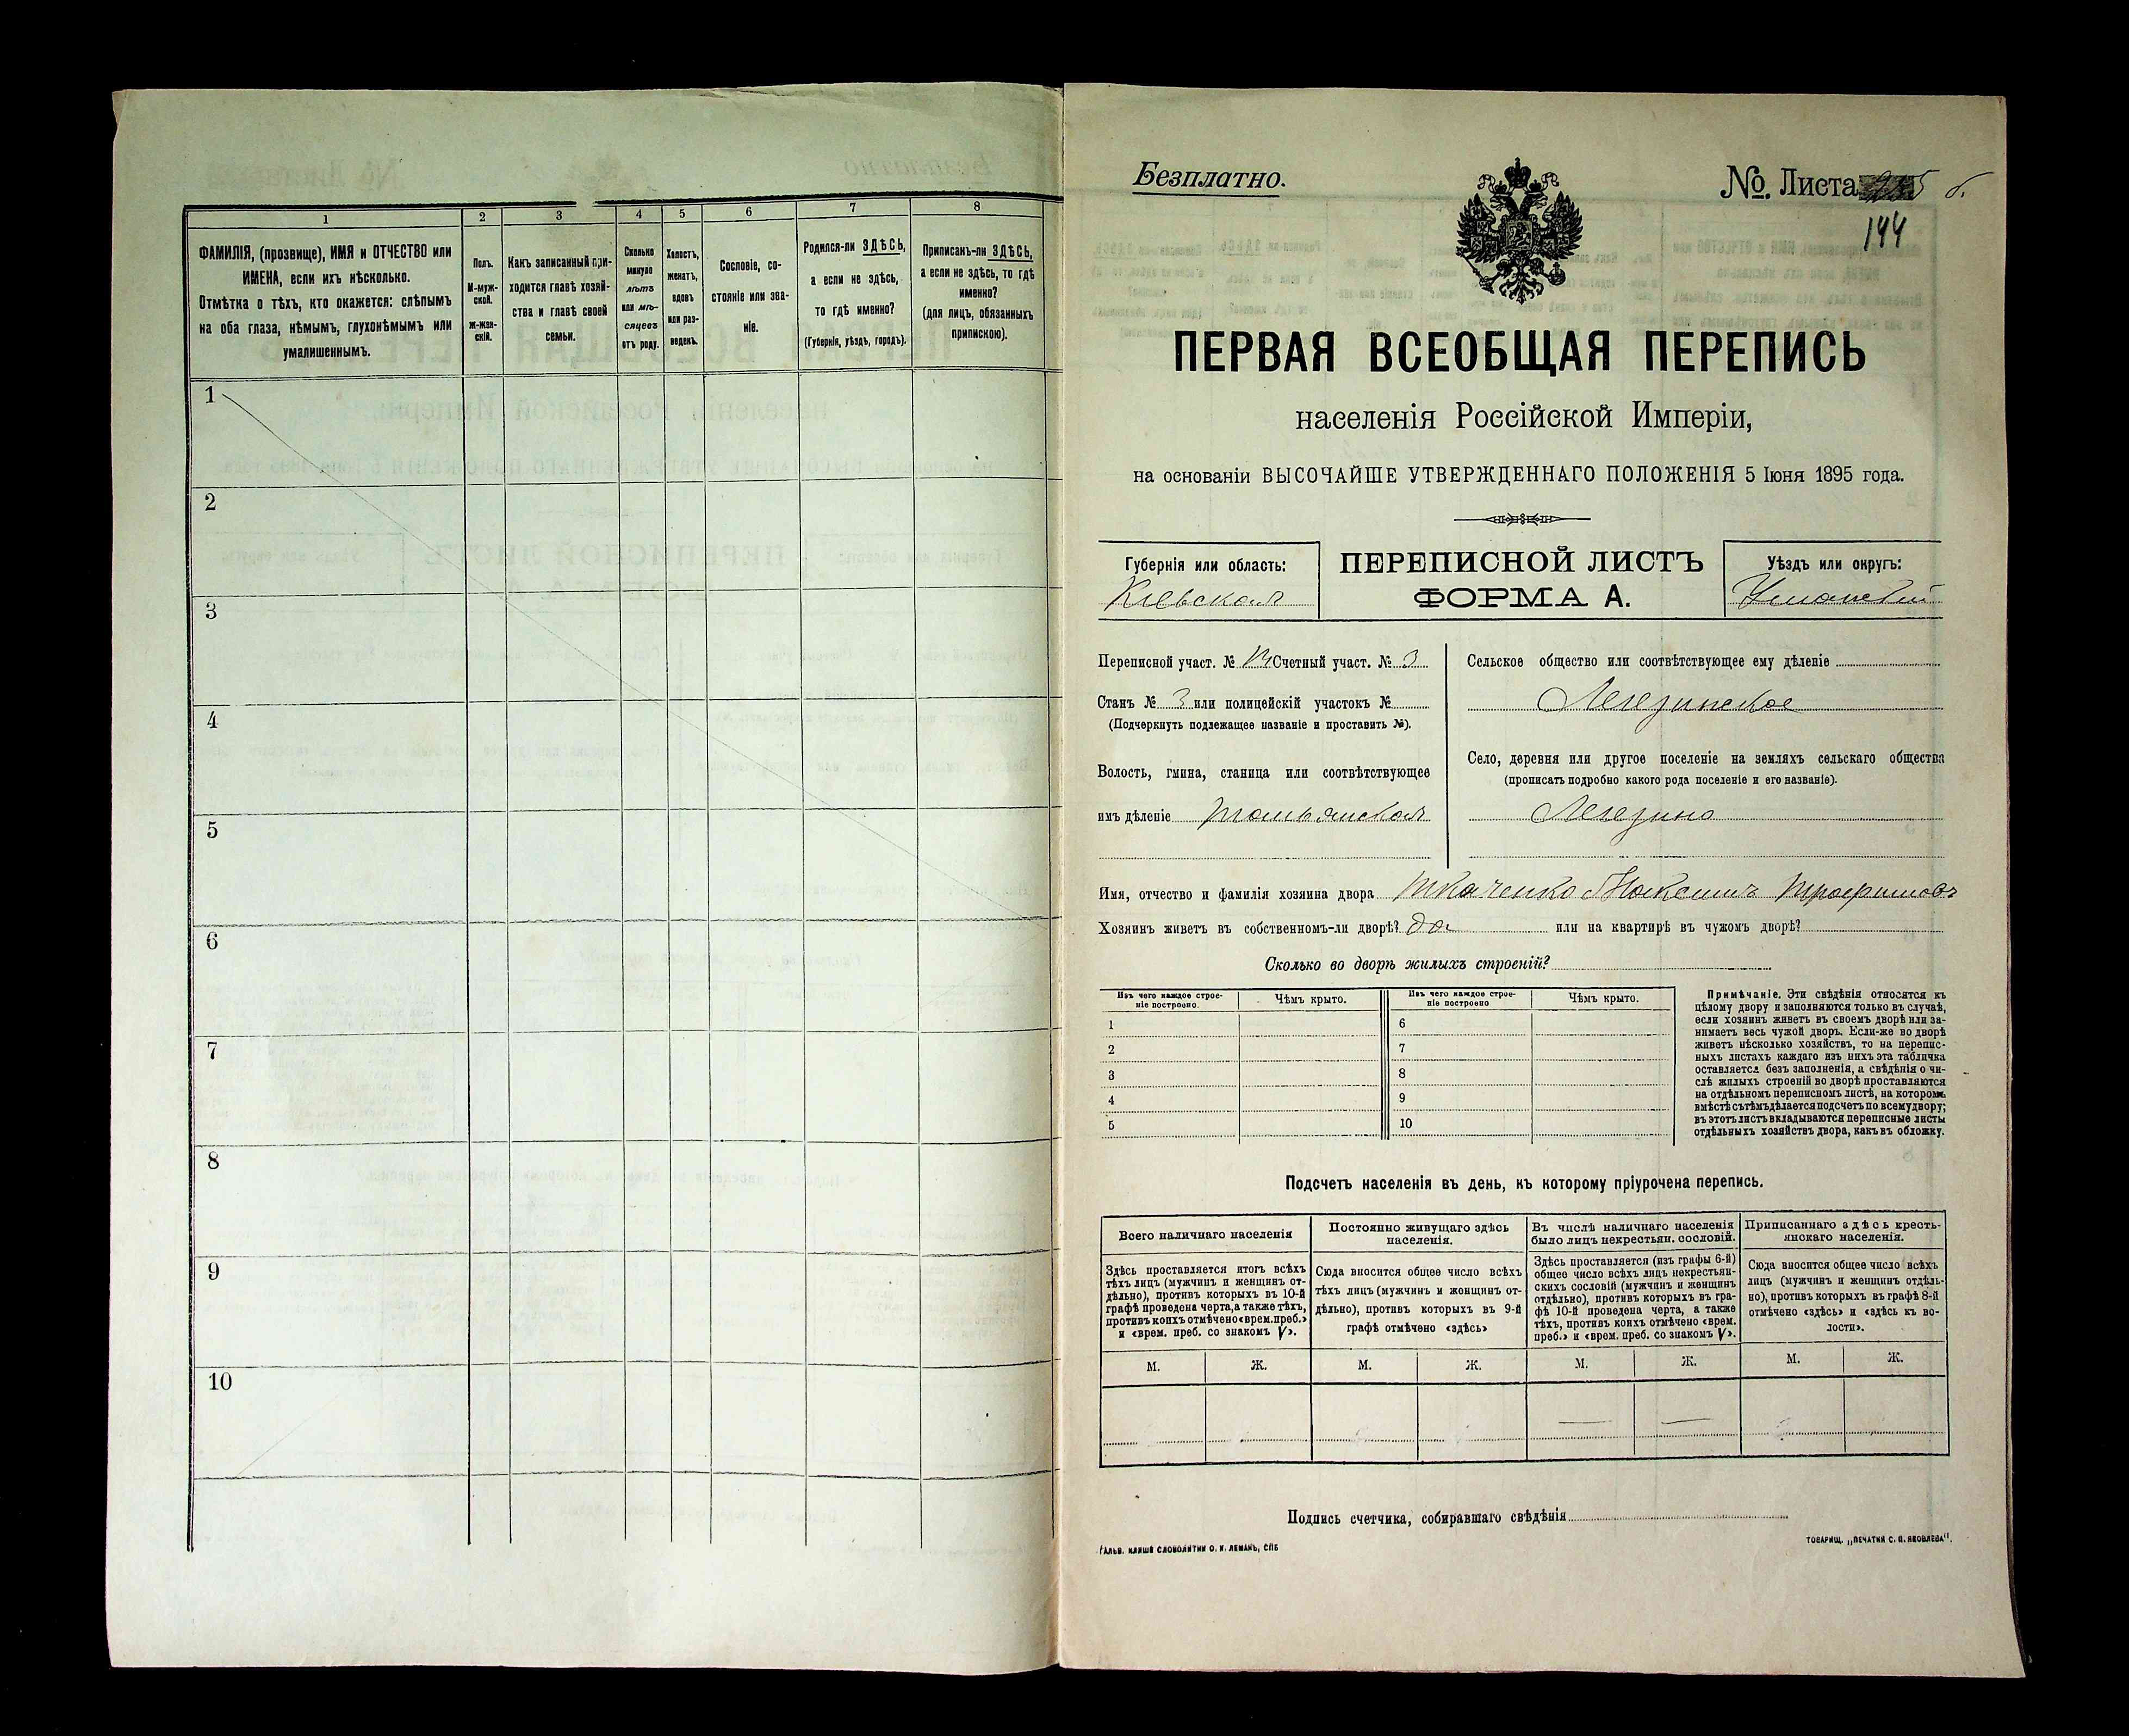 1 2 3 4 5 6 7 8
ФАМИЛІЯ, (прозвище), ИМЯ и ОТЧЕСТВО или
ИМЕНА, если ихъ нѣсколько.
Отмѣтка о тѣхъ, кто окажется: слѣпымъ
на оба глаза, нѣмымъ, глухонѣмымъ или
умалишеннымъ.
Полъ.
М-муж-
ской.
ж-жен-
скій.
Какъ записанный при-
ходится главѣ хозяй-
ства и главѣ своей
семьи.
Сколько
минуло
лѣтъ
или мѣ-
сяцевъ
отъ роду.
Холостъ,
женатъ,
вдовъ
или раз-
веденъ.
Сословіе, со-
стояніе или зва-
ніе.
Родился-ли ЗДѢСЬ,
а если не здѣсь,
то гдѣ именно?
(Губернія, уѣздъ, городъ).
Приписанъ-ли ЗДѢСЬ,
а если не здѣсь, то гдѣ
именно?
(для лицъ, обязанныхъ
припискою).
1
2
3
4
5
6
7
8
9
10
Безплатно.
№ Листа
144
ПЕРВАЯ ВСЕОБЩАЯ ПЕРЕПИСЬ
населенія Россійской Имперіи,
на основаніи ВЫСОЧАЙШЕ УТВЕРЖДЕННАГО ПОЛОЖЕНІЯ 5 Іюня 1895 года.
Губернія или область:
Кіевская
ПЕРЕПИСНОЙ ЛИСТЪ
ФОРМА А.
Уѣздъ или округъ:
Уманскій
Переписной участ. № Счетный участ. № 3
Станъ № 3 или полицейскій участокъ №
(Подчеркнуть подлежащее названіе и проставить №).
Волость, гмина, станица или соотвѣтствующее
имъ дѣленіе Тальянская
Сельское общество или соотвѣтствующее ему дѣленіе
Легезинское
Село, деревня или другое поселеніе на земляхъ сельскаго общества
(прописать подробно какого рода поселеніе и его названіе).
Легезино
Имя, отчество и фамилія хозяина двора Ткаченко Максимъ Трофимовъ
Хозяинъ живетъ въ собственномъ-ли дворѣ? да или на квартирѣ въ чужомъ дворѣ?
Сколько во дворѣ жилыхъ строеній?
Изъ чего каждое строе-
ніе построено.
Чѣмъ крыто.
Изъ чего каждое строе-
ніе построено
Чѣмъ крыто.
1 6
2 7
3 8
4 9
5 10
Примѣчаніе. Эти свѣдѣнія относятся къ
цѣлому двору и заполняются только въ случаѣ,
если хозяинъ живетъ въ своемъ дворѣ или за-
нимаетъ весь чужой дворъ. Если-же во дворѣ
живетъ нѣсколько хозяйствъ, то на перепис-
ныхъ листахъ каждаго изъ нихъ эта табличка
оставляется безъ заполненія, а свѣдѣнія о чи-
слѣ жилыхъ строеній во дворѣ проставляются
на отдѣльномъ переписномъ листѣ, на которомъ
вмѣстѣ съ тѣмъ дѣлается подсчетъ по всему двору;
въ этотъ листъ вкладываются переписные листы
отдѣльныхъ хозяйствъ двора, какъ въ обложку.
Подсчетъ населенія въ день, къ которому пріурочена перепись.
Всего наличнаго населенія
Здѣсь проставляется итогъ всѣхъ
тѣхъ лицъ (мужчинъ и женщинъ от-
дѣльно), противъ которыхъ въ 10-й
графѣ проведена черта, а также тѣхъ,
противъ коихъ отмѣчено «врем. преб.»
и «врем. преб. со знакомъ V».
Постоянно живущаго здѣсь
населенія.
Сюда вносится общее число всѣхъ
тѣхъ лицъ (мужчинъ и женщинъ от-
дѣльно), противъ которыхъ въ 9-й
графѣ отмѣчено «здѣсь»
Въ числѣ наличнаго населенія
было лицъ некрестьян. сословій.
Здѣсь проставляется (изъ графы 6-й)
общее число всѣхъ лицъ некрестьян-
скихъ сословій (мужчинъ и женщинъ
отдѣльно), противъ которыхъ въ гра-
фѣ 10-й проведена черта, а также
тѣхъ, противъ коихъ отмѣчено «врем.
преб.» и «врем. преб. со знакомъ V».
Приписаннаго здѣсь кресть-
янскаго населенія.
Сюда вносится общее число всѣхъ
лицъ (мужчинъ и женщинъ отдѣль-
но), противъ которыхъ въ графѣ 8-й
отмѣчено «здѣсь» и «здѣсь къ во-
лости».
М. Ж. М. Ж. М. Ж. М. Ж.
— —
Подпись счетчика, собиравшаго свѣдѣнія
ГАЛЬВ. КЛИШЕ СЛОВОЛИТНИ О. И. ЛЕМАНЪ, СПБ
ТОВАРИЩ. „ПЕЧАТНИ С. П. ЯКОВЛЕВА".